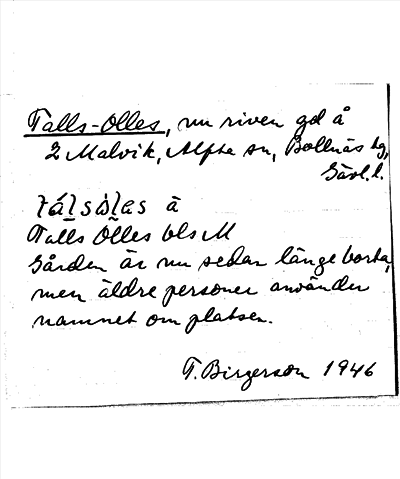 Talls-Olles, nu riven gd å
2 Malvik, Alfta sn, Bollnäs tg,
Gävl. l.
tálsòlas ā
Talls Olles bls M
Gården är nu sedan länge borta,
men äldre personer använder
namnet om platsen.
T. Birgerson 1946